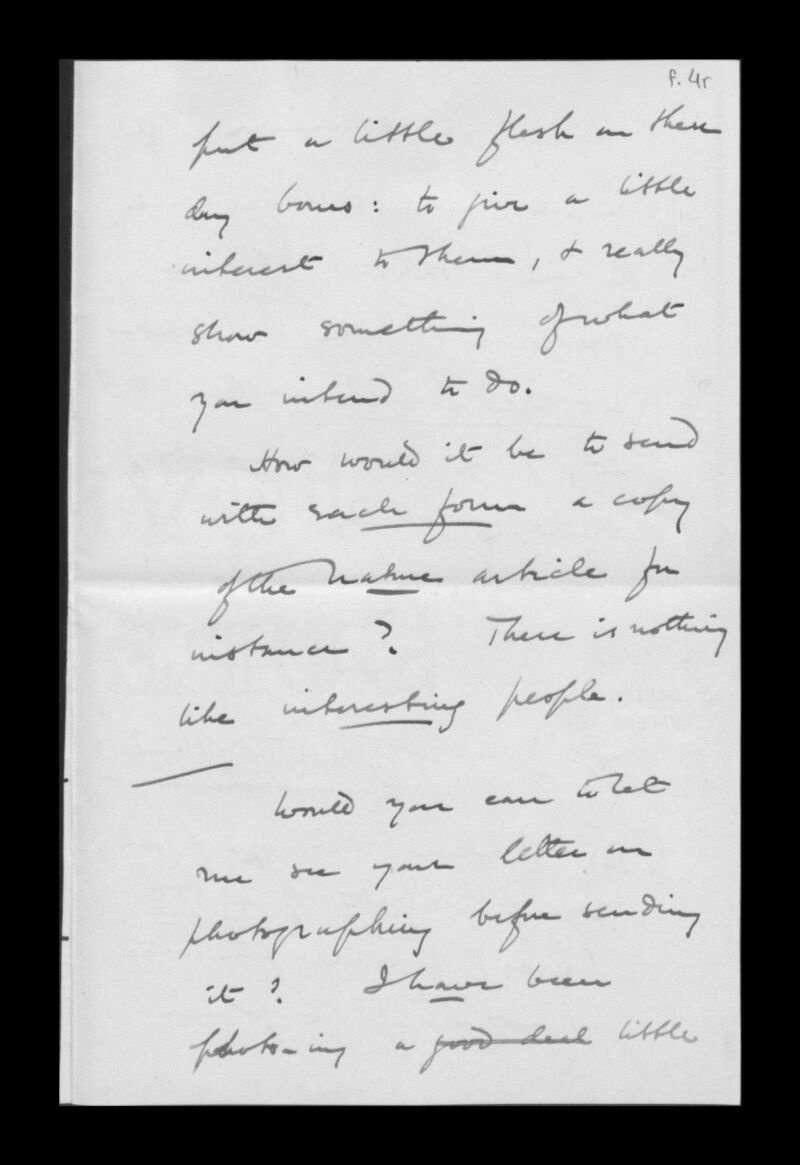 f. 4r
put a little flesh on these
dry bones: to give a little
interest to them, & really
show something of what
you intend to do.
How would it be to send
with each form a copy
of the Nature article for
instance? There is nothing
like interesting people.
Would you care to let
me see your letter on
photographing before sending
it? I have been
photo-ing a good deal little